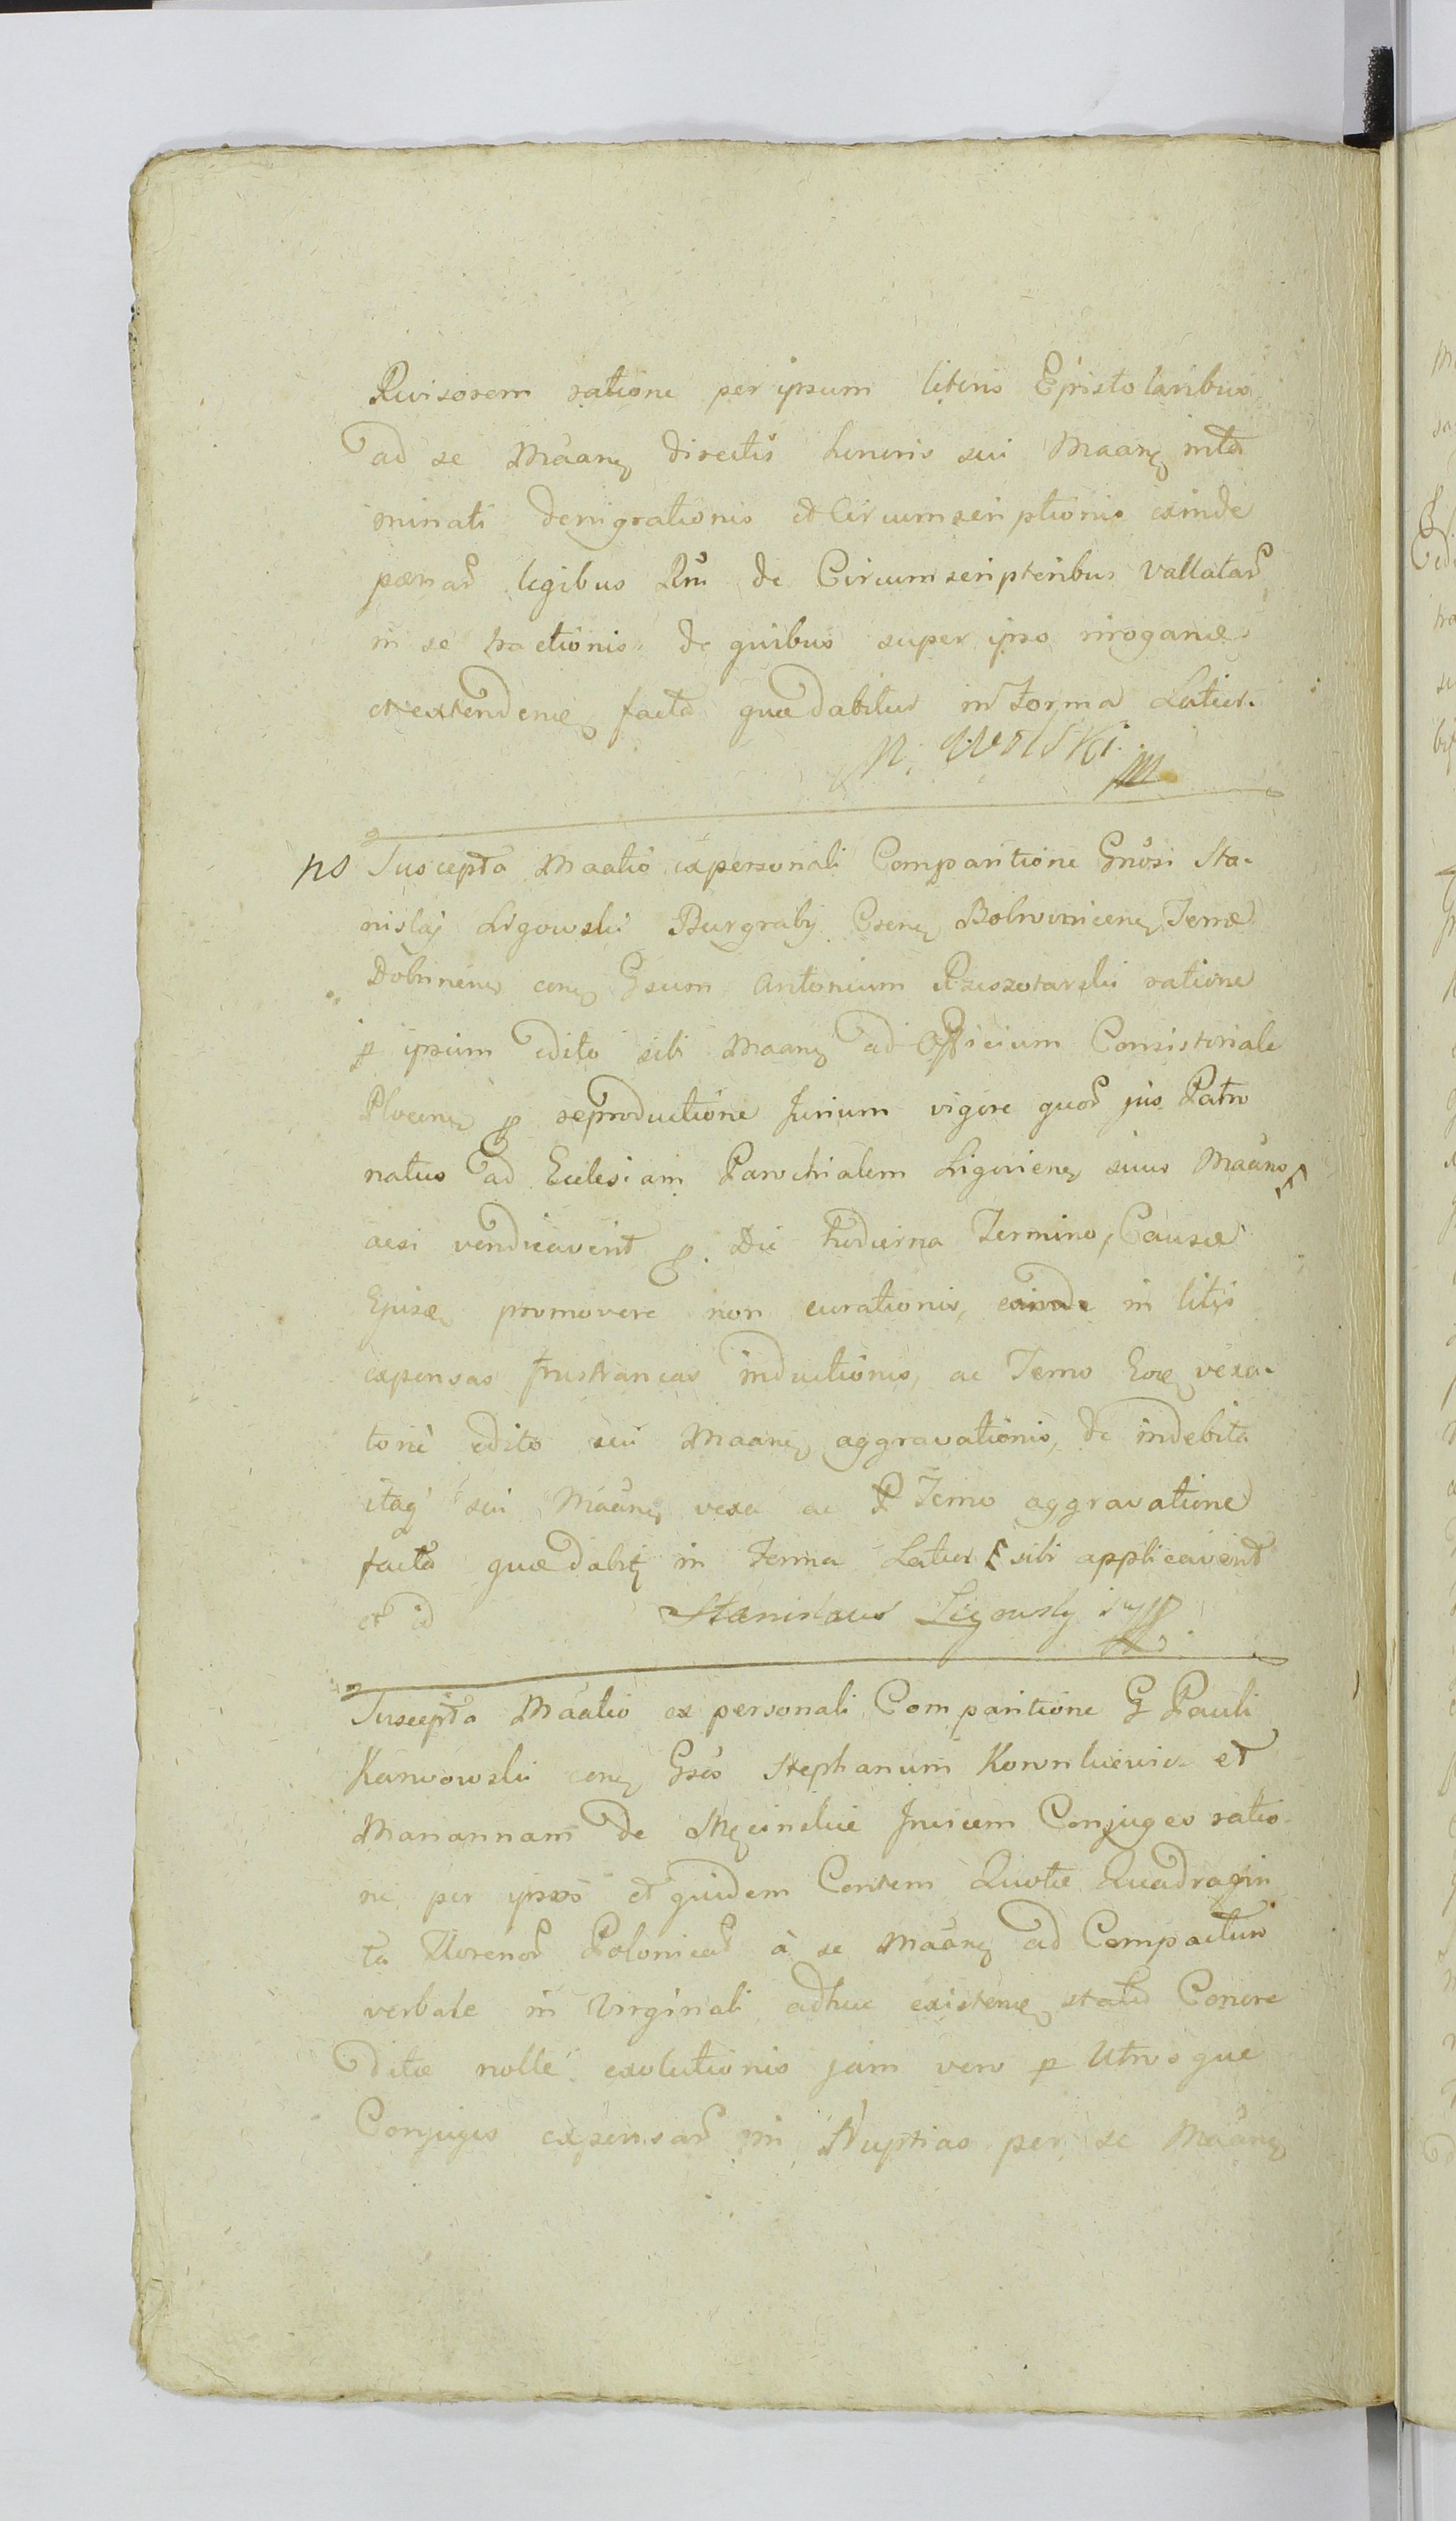 Revisorem ratione per ipsum literis Epistolaribus
ad se Maanę directis honoris sui Maanę
minati denigrationis et Circumscriptionis exinde
pœnar legibus Rni de Circumscriptoribus Vallatar
in se tractionis de quibus super ipso irroganę
et extendenę facta quæ dabitur in Forma Latior.
Wolski mp
ns Suscepta Maatio ex personali Comparitione Gnosi Sta-
nislaj Ligowski Burgrabij Csenę Bobrovnicenę Terræ
Dobrinenę conę Gsum Antonium Rzeszotarski ratione
p ipsum edito sibi Maanę ad Officium Consistoriale
Plocenę p reproductione Jurium vigore quor jus Patro
natus ad Eclesiam Parochialem Ligovienę suus Maans
acsi vendicaverit p. Die hodierna Termino, Causæ
Ejusę promovere non curationis, exinde in litis
expensas frustraneas inductionis, ac Termo Eoę vexa-
torie edito sui Maanę aggravationis, de indebita
itaq sui Maanę vexa ac P Termo aggravatione
facta quæ dabitę in Forma Latior sibi applicaverit
et id Stanislaus Ligowsky
Suscepta Maatio ex personali Comparitione G Pauli
Karwowski conę Gsos Stephanum et
Mariannam de Męcinskie Invicem Conjuges ratio-
ne per ipsos et quidem Consem Quotæ Quadragin
ta florenor Polonical à se Maanę ad Compactum
verbale in Virginali adhuc existenę statu Concre
ditæ nolle exolutionis jam vero p Utrosque
Conjuges expensar in Nuptias per se Maanę